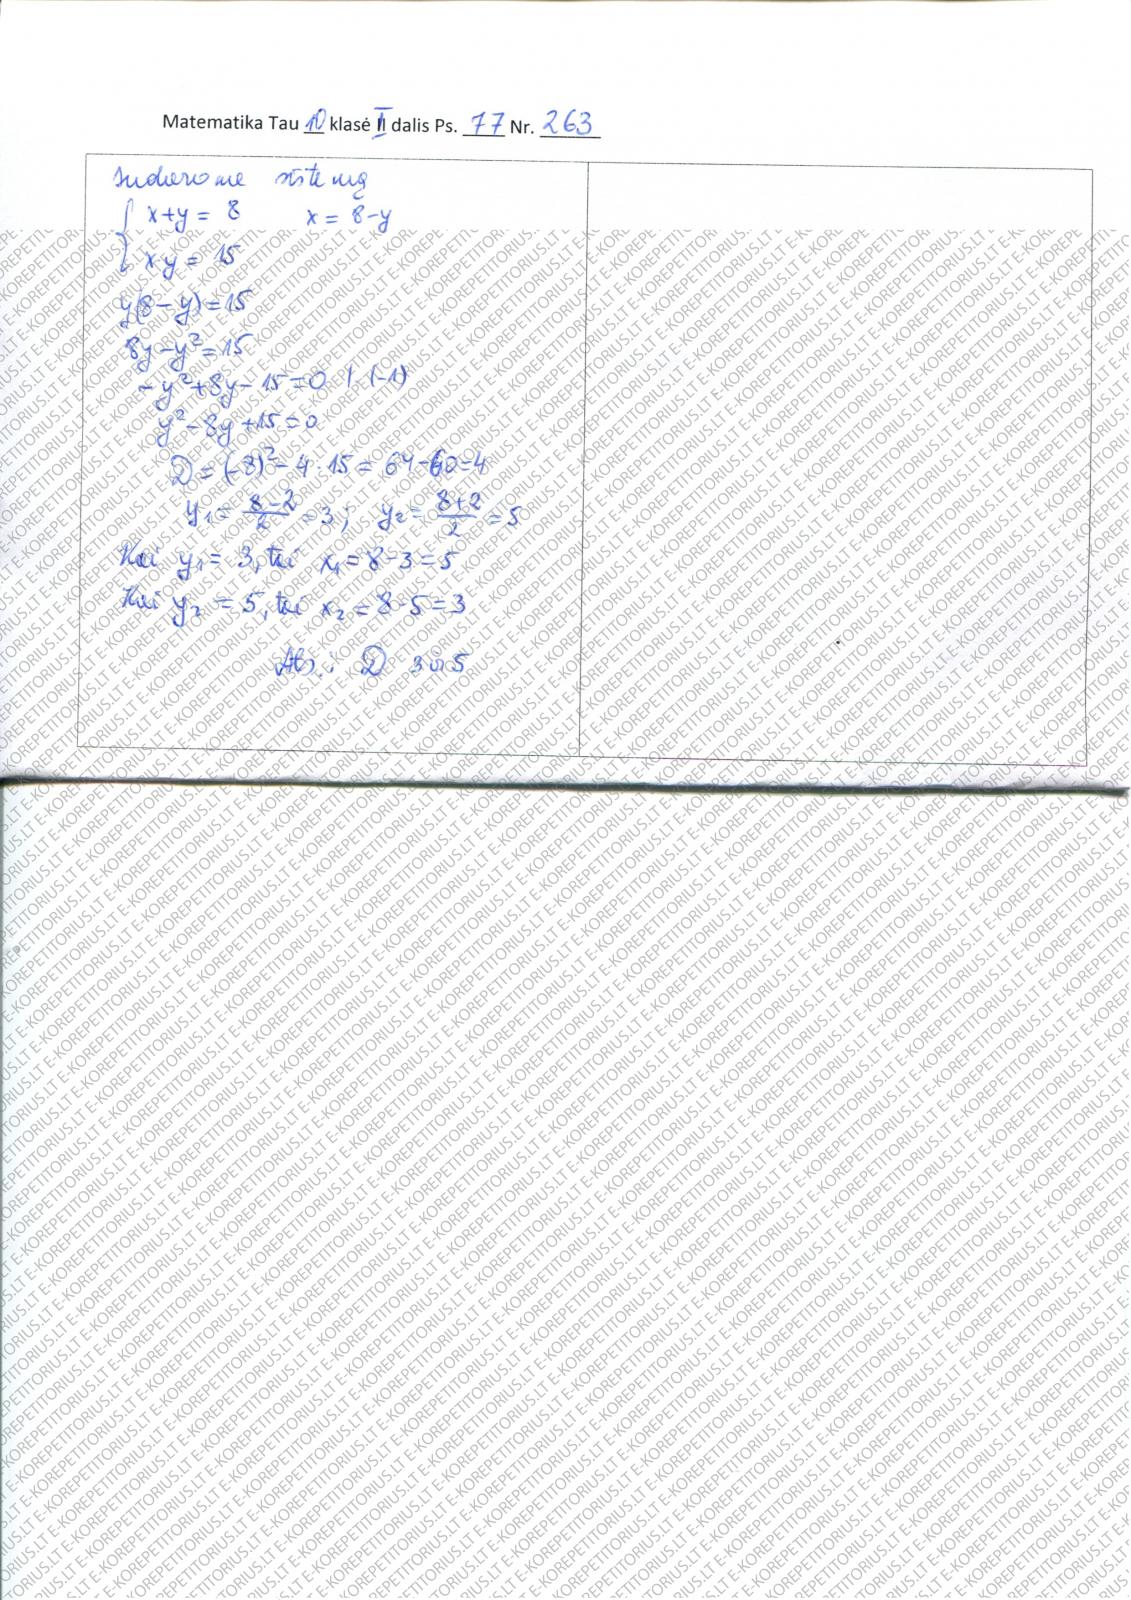 Matematika Tau 10 klasė II dalis Ps. 77 Nr. 263
Sudarome sistemą
x+y = 8 x = 8-y
x·y = 15
y(8-y)=15
8y-y²=15
-y²+8y-15=0 | (-1)
y²-8y+15=0
D=(-8)²-4·15=64-60=4
y₁=\frac{8-2}{2}=3; y₂=\frac{8+2}{2}=5
Kai y₁=3, tai x₁=8-3=5
Kai y₂=5, tai x₂=8-5=3
Ats.: D 3 ir 5
E-KOREPETITORIUS.LT